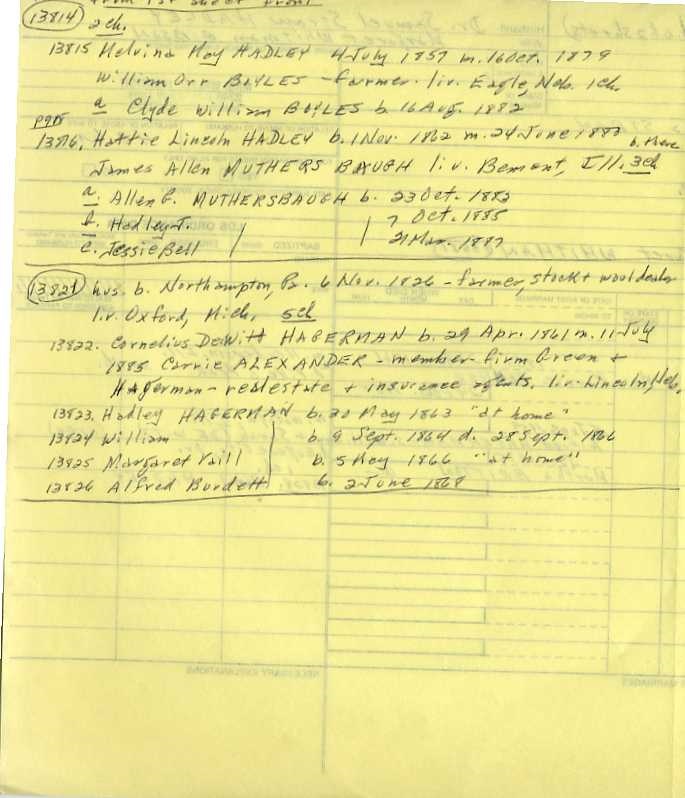 from 1st sheet front
13814 2ch.
13815 Melvina May HADLEY 4 July 1857 m. 16 Oct. 1879
William Orr BOYLES - farmer. liv. Eagle, Neb. 1ch.
a Clyde William BOYLES b. 16 Aug. 1882
13816. Hattie Lincoln HADLEY b. 1 Nov. 1862 m. 24 June 1882 b. there
James Allen MUTHERSBAUGH liv. Bement, Ill. 3ch
a. Allen G. MUTHERSBAUGH b. 23 Oct. 1883
b. Hadley J. 7 Oct. 1885
c. Jessie Bell 21 Mar. 1887
13821 hus. b. Northampton, Pa. 6 Nov. 1826 - farmer, stock + wool dealer
liv. Oxford, Mich. 5ch
13822. Cornelius DeWitt HAGERMAN b. 29 Apr. 1861 m. 11 July
1885 Carrie ALEXANDER - member firm Green +
Hagerman - real estate + insurance agents. liv. Lincoln, Neb.
13823. Hadley HAGERMAN b. 20 May 1863 "at home"
13824 William b. 9 Sept. 1864 d. 28 Sept. 1866
13825 Margaret Vaill b. 5 May 1866 "at home"
13826 Alfred Burdett b. 2 June 1868
NECESSARY EXPLANATIONS